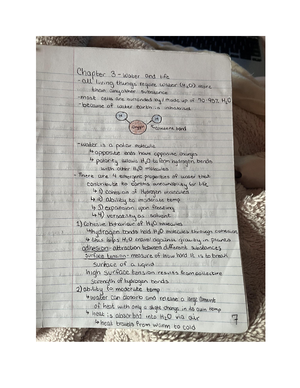 Chapter 3 - Water and life
- all living things require water (H2O) more
than any other substance
- most cells are surrounded by / made up of 70-95% H2O
- because of water Earth is habitable
H
H
covalent bond
- water is a polar molecule
↳ opposite ends have opposite charges
↳ polarity allows H2O to form hydrogen bonds
with other H2O molecules
- There are 4 emergent properties of water that
contribute to Earth's suitability for life
↳ 1) cohesion of hydrogen
↳ 2) ability to moderate temp
↳ 3) expansion upon freezing
↳ 4) versatility as solvent
1) Cohesive behaviour of H2O molecules
↳ hydrogen bonds hold H2O molecules through cohesion
↳ this helps H2O travel against gravity in plants
adhesion: attraction between different substances
surface tension: measure of how hard it is to break
surface of a liquid
high surface tension results from collective
strength of hydrogen bonds
2) ability to moderate temp
↳ water can absorb and release a large amount
of heat with only a slight change in its own temp
↳ heat is absorbed into H2O via air
↳ heat travels from warm to cold
7